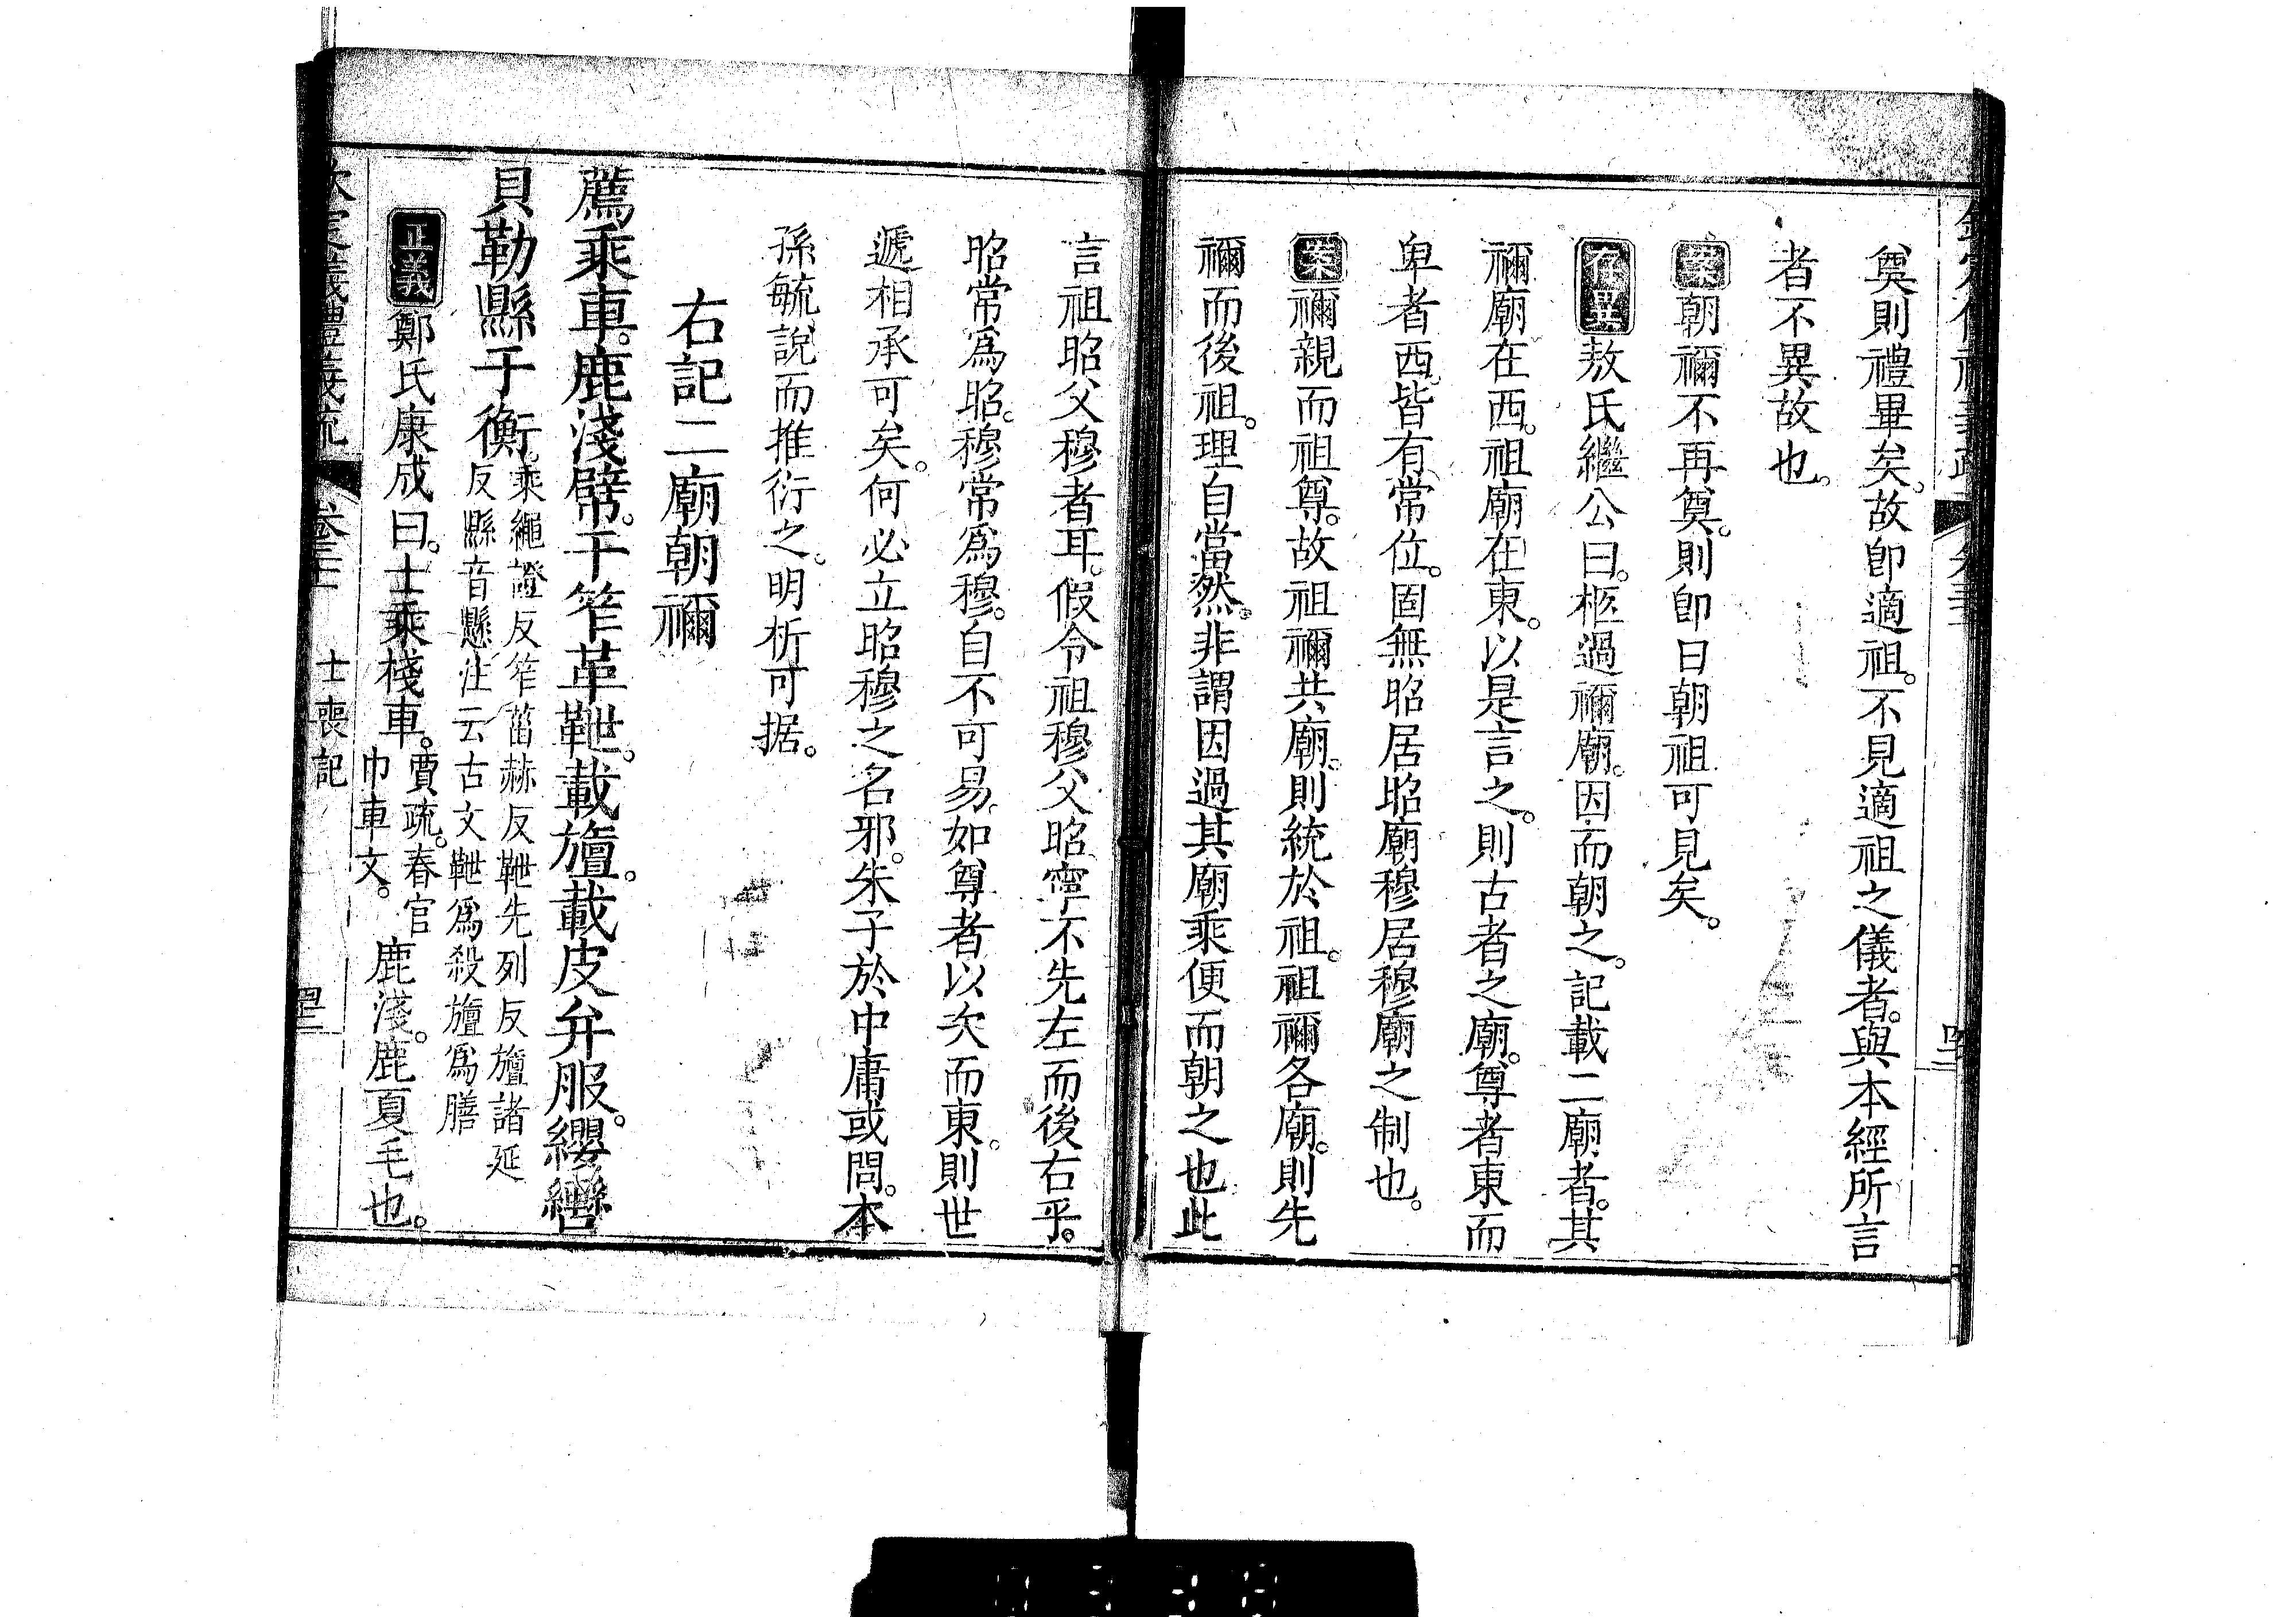 奠則禮畢矣。故卽適祖。不見適祖之儀者。與本經所言
者不異故也。
案朝禰不再奠。則卽日朝祖可見矣。
存異敖氏繼公曰。柩過禰廟。因而朝之。記載二廟者。其
禰廟在西。祖廟在東。以是言之。則古者之廟。尊者東而
卑者西。皆有常位。固無昭居昭廟穆居穆廟之制也。
案禰親而祖尊。故祖禰共廟。則統於祖。祖禰各廟。則先
禰而後祖。理自當然。非謂因過其廟乘便而朝之也此
言祖昭父穆者耳。假令祖穆父昭寧不先左而後右乎。
昭常爲昭。穆常爲穆。自不可易。如尊者以次而東。則世
遞相承可矣。何必立昭穆之名邪。朱子於中庸或問。本
孫毓說而推衍之。明析可据。
右記二廟朝禰
薦乘車。鹿淺幦。干笮革靾。載旜。載皮弁服。纓轡
貝勒縣于衡。乘繩證反笮莒赫反靾先列反旜諸延
反縣音懸注云古文靾爲殺旜爲膳
正義鄭氏康成曰。士乘棧車。賈疏。春官
巾車文。鹿淺。鹿夏毛也。
士喪記